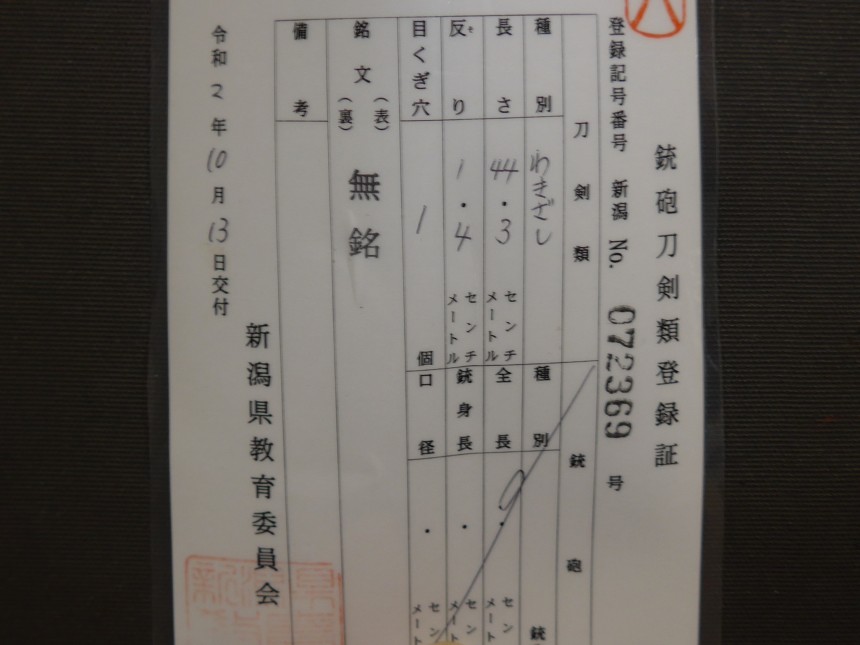 銃砲刀剣類登録証
登録記号番号 新潟 No. 072369 号
刀剣類
種別 わきざし
長さ 44.3 センチメートル
反り 1.4 センチメートル
目くぎ穴 1 個
銘文 (表) (裏) 無銘
備考
銃砲
種別 銃
全長 . センチメート
銃身長 . センチメート
口径 . センチメート
令和2年10月13日交付
新潟県教育委員会